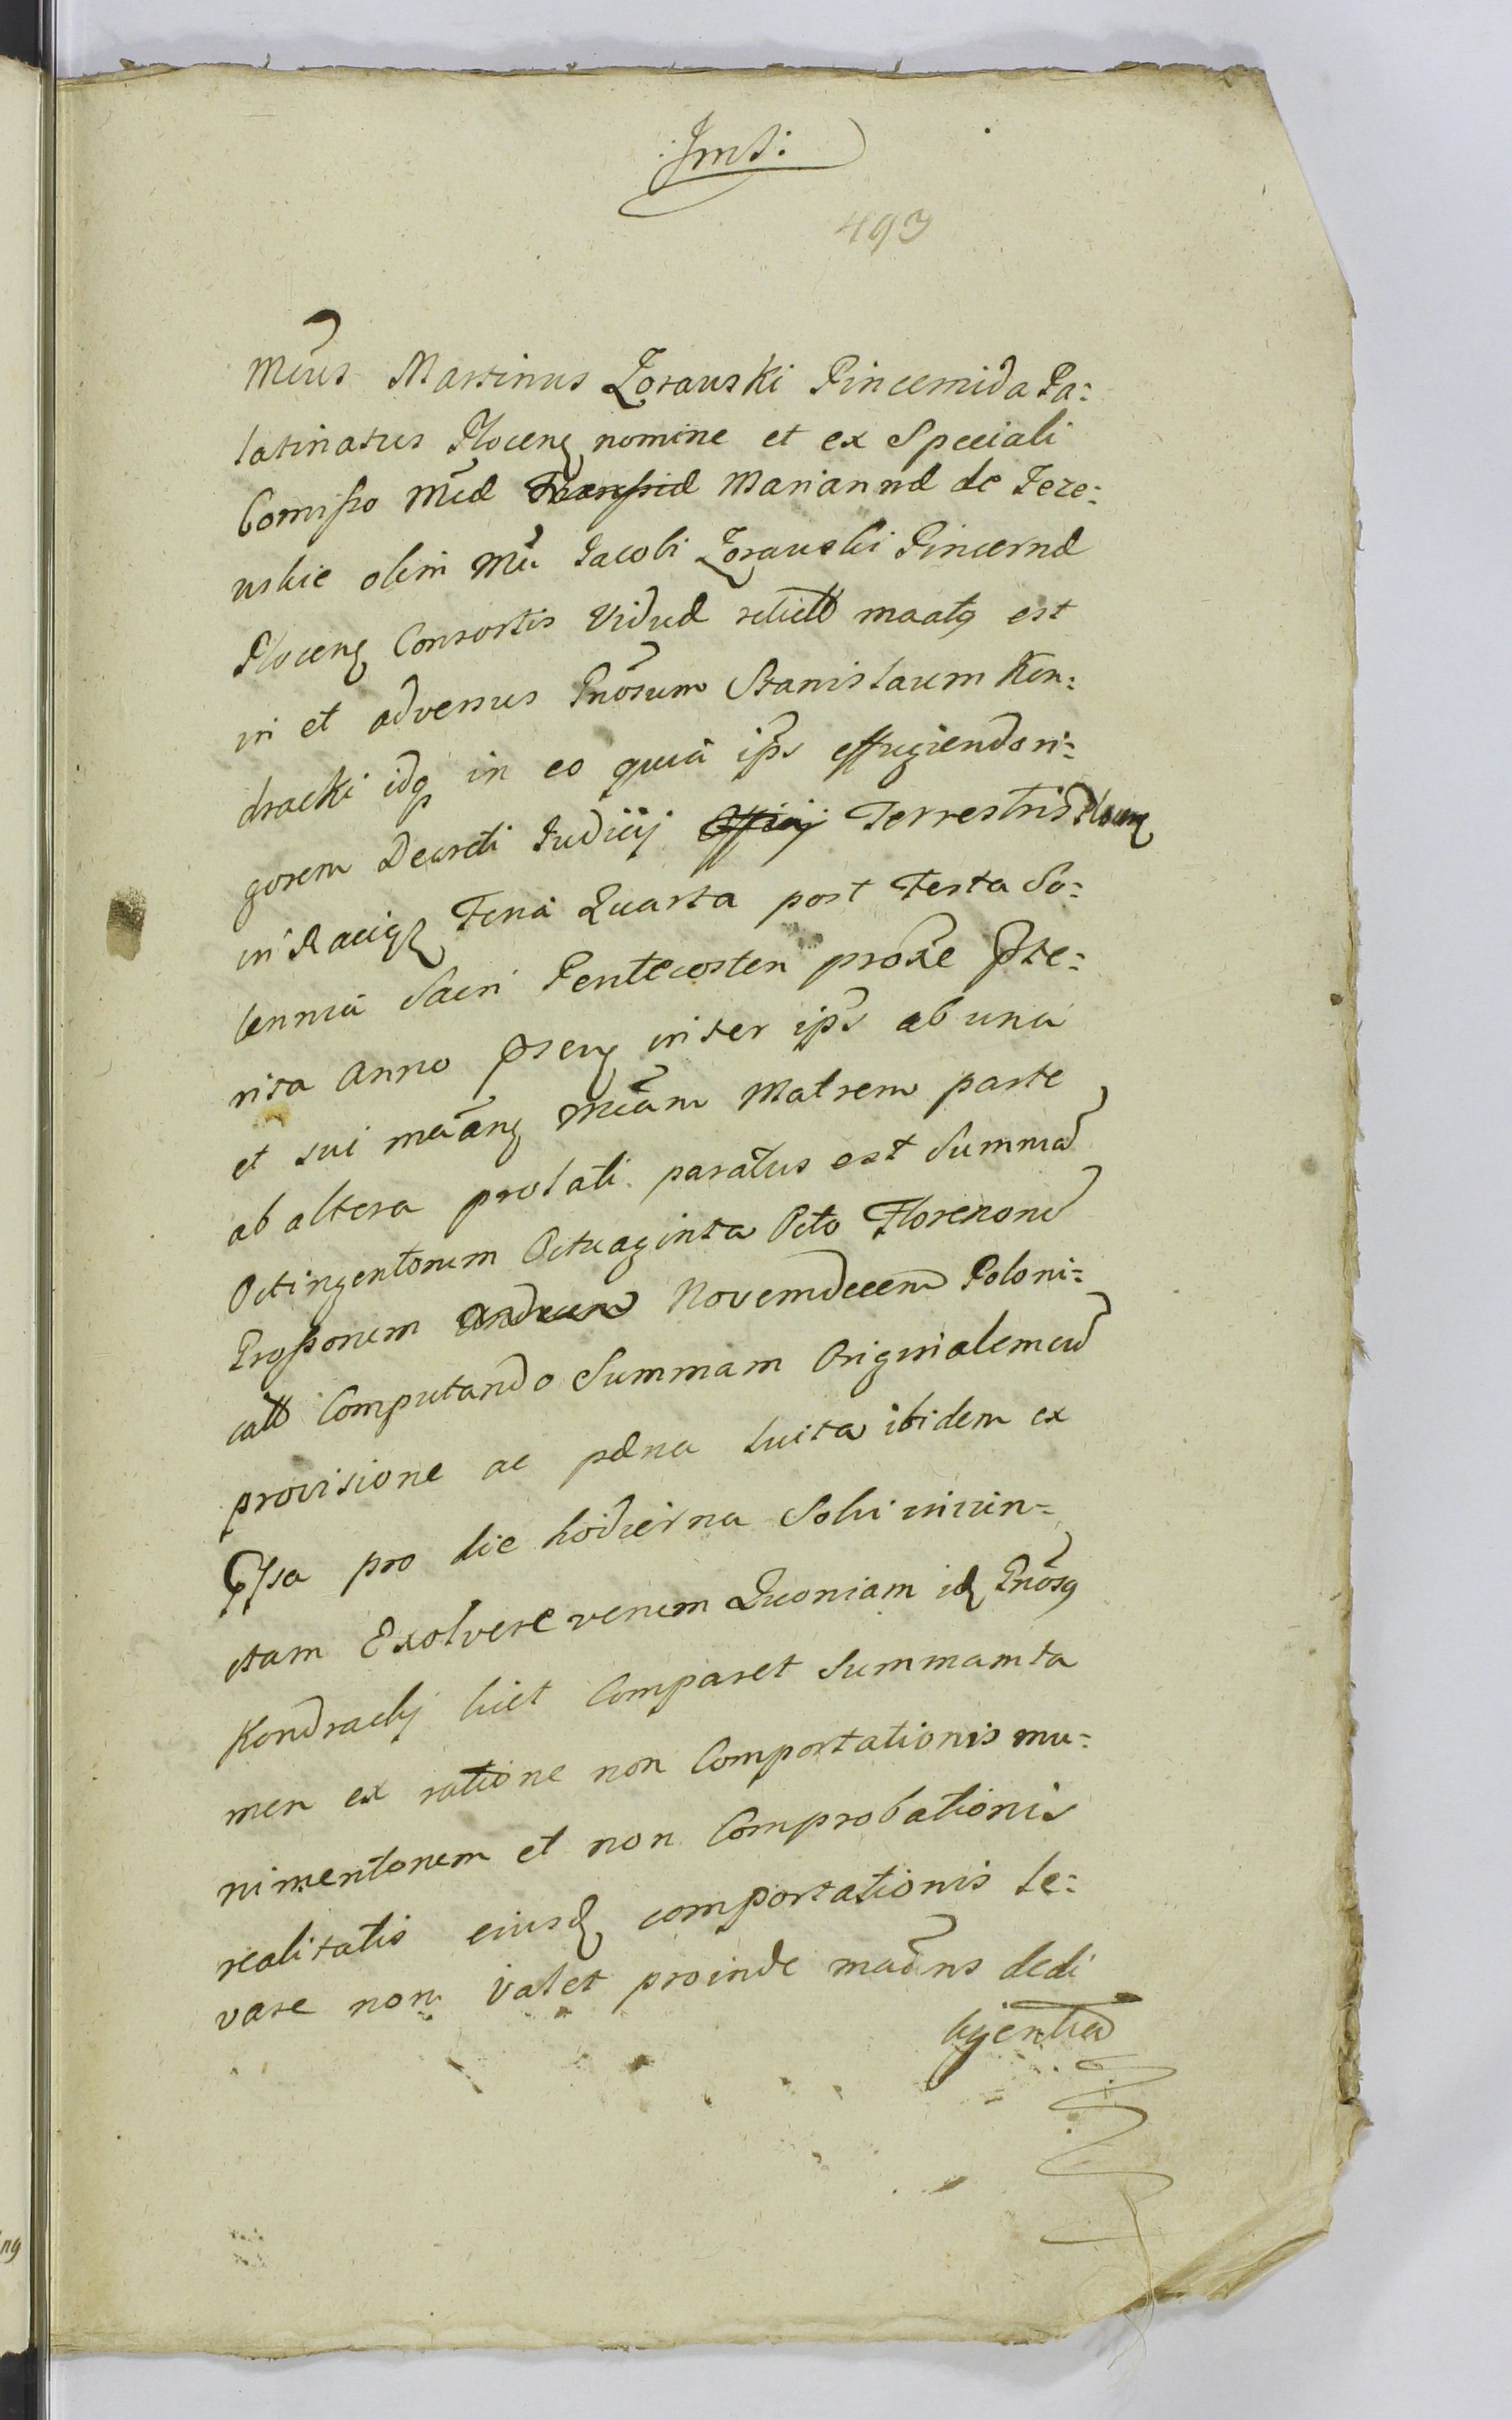 Imt:
493
Mcus Martinus Zorauski Pincernida Pa:
latinatus Plocens nomine et ex Speciali
Comisso Mcæ Mariannæ de Jeze:
uskie olim Mci Jacobi Zorauski Pincernæ
Plocens Consortis Viduæ relictæ maatq est
in et adversus Gnosum Stanislaum Kon:
dracki idq in eo quia ips effugiendo ri:
gorem Decreti Judicij Officij Terrestris Plocens
in Raciąż Feria Quarta post Festa So:
lennia Sacri Pentecosten proxe præte:
rita Anno præsens inter ips ab una
et sui maans Mcam Matrem parte
ab altera prolati paratus est Summā
Octingentorum Octuaginta Octo Florenorū
Grossorum Novemdecem Poloni:
call Computando Summam Originalem cū
provisione ac pæna luita ibidem ex
pssa pro die hodierna Solvi iniun:
ctam Exolvere verum Quoniam id Gnosq
Kondracky licet Comparet Summam ta
men ex ratione non Comportationis mu:
nimentorum et non Comprobationis
realitatis eiusd comportationis le:
vare non valet proinde maans dedi
ligentia